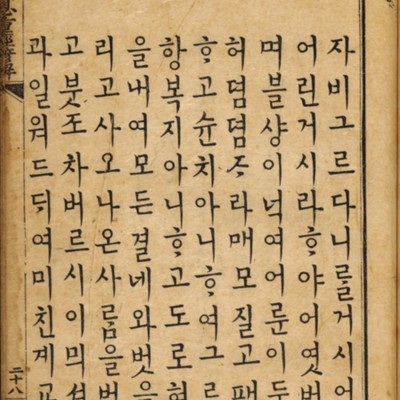 자비그르다니ᄅᆞᆯ거시어
어린거시라ᄒᆞ야어엿버
며블샹이넉여어룬이두
허뎜뎜ᄌᆞ라매모질고패
ᄒᆞ고슌치아니ᄒᆞ여그르
항복지아니ᄒᆞ고도로혀
을내여모든결네와벗을
리고사오나온사름을
고붓조차버르시이믜셔
과일워드ᄃᆡ여미친계교
恩重經諺解
二十八